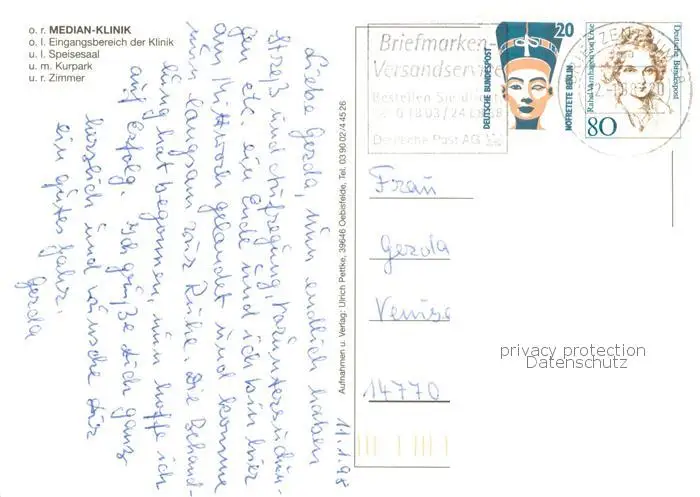 o. r. MEDIAN-KLINIK
o. l. Eingangsbereich der Klinik
u. l. Speisesaal
u. m. Kurpark
u. r. Zimmer
11.1.98
Liebe Gerda, nun endlich haben
Streß und Aufregung, Voruntersuchun-
gen etc. ein Ende und ich bin hier
am Mittwoch gelandet und komme
nun langsam zur Ruhe. Die Behand-
lung hat begonnen, nun hoffe ich
auf Erfolg. Ich grüße Dich ganz
herzlich und wünsche Dir
ein gutes Jahr.
Gerda
Aufnahmen u. Verlag: Ulrich Pettke, 39646 Oebisfelde, Tel. 03 90 02/4 45 26
Briefmarken-
Versandservice
Bestellen Sie
Deutsche Post AG
20
DEUTSCHE BUNDESPOST
NOFRETETE BERLIN
Rahel Varnhagen von Ense
Deutsche Bundespost
80
Frau
Gerda
Venuse
14770
privacy protection
Datenschutz